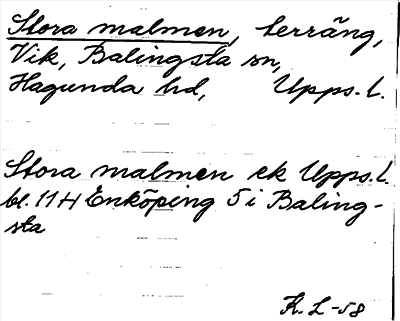 Stora malmen, terräng,
Vik, Balingsta sn,
Hagunda hd, Upps. l.
Stora malmen ek Upps. l.
bl. 11 H Enköping 5 i Baling-
sta
K. L -58